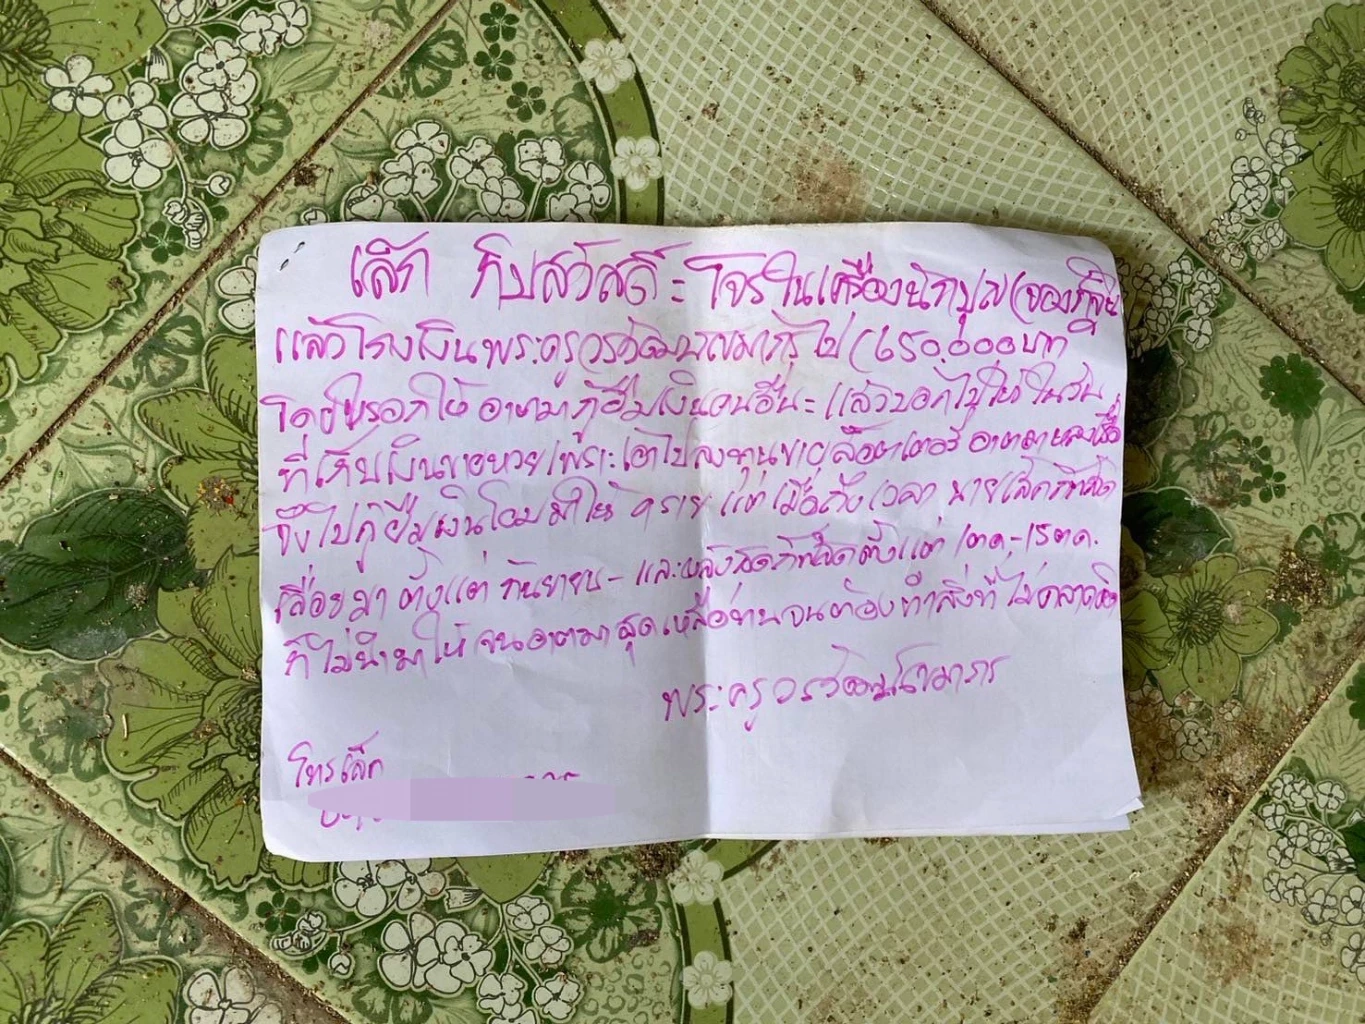 เล็ก ทิปสวัสดิ์ = โจรในเครื่องนักบุญ (จองกฐิน
แล้วโกงเงินพระครูวรวัฒน ไป (๖๕๐,๐๐๐บาท
โดยหรอกให้ อาตมากู้ยืมเงินคนอื่น = แล้วบอกไปให้ ในวัน
ที่เก็บเงินขายหวยเพราะเอาไปลงทุนขายล๊อตเตอรี่ อาตมาหลงเชื่อ
จึงไปกู้ยืมเงินโอนมาให้ แต่เมื่อถึงเวลา นายเล็กก็พลัด
เลื่อยมา ตั้งแต่ กันยายน - และหลังสุดก็พลัดตั้งแต่ ๑ตค.-๑๕ตค.
ก็ไม่นำมาให้ จนอาตมาสุดเหลือทนจนต้องทำสิ่งที่ไม่คาดคิด
พระครูวรวัฒน
โทร เล็ก